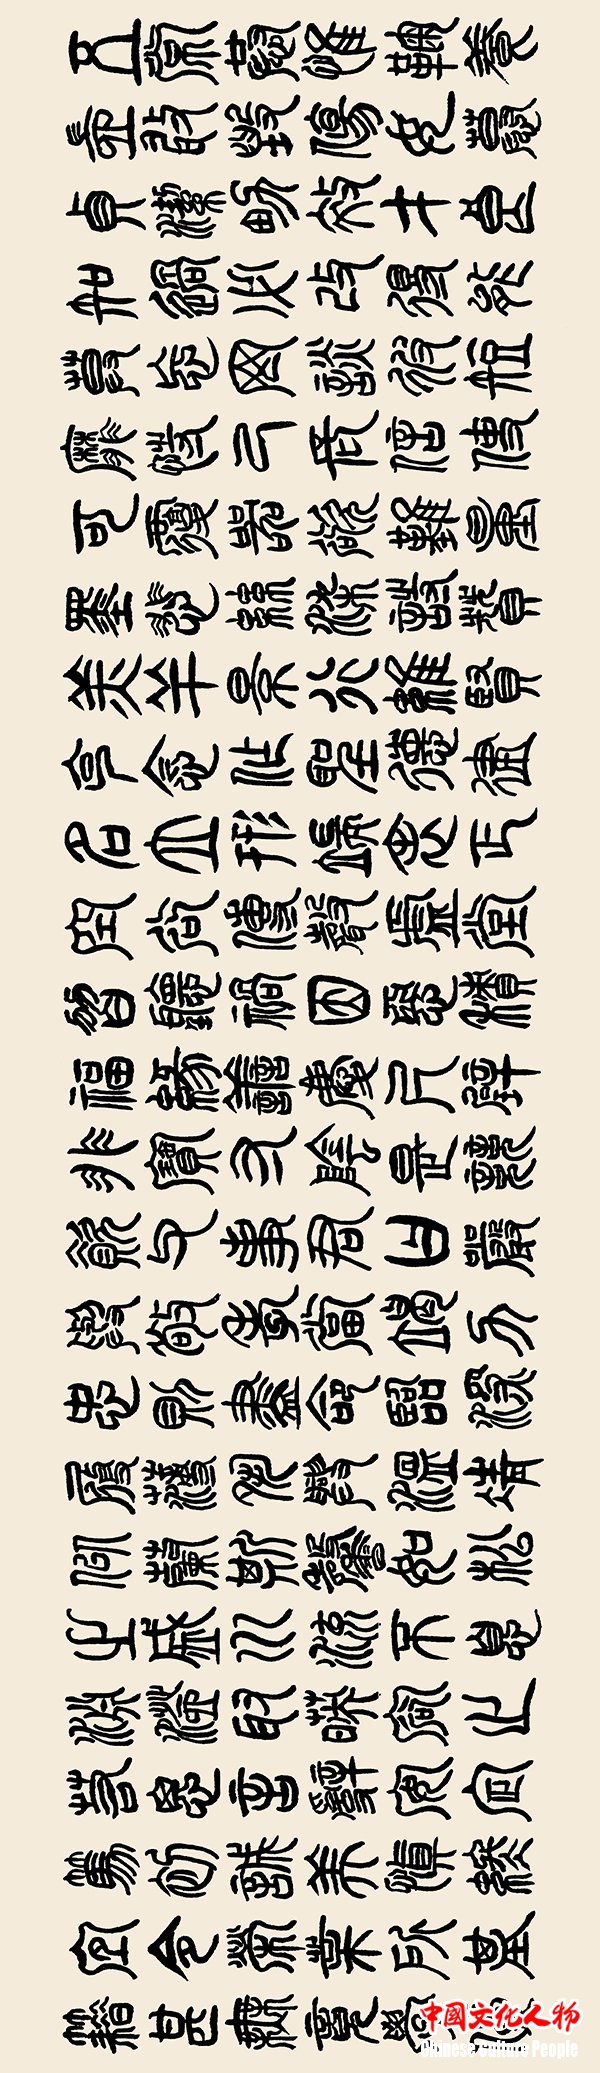 五常恭惟鞠養
豈敢毀傷女慕
貞潔男效才良
知過必改得能
莫忘罔談彼短
靡恃己長信使
可覆器欲難量
墨悲絲染詩讚
羔羊景行維賢
克念作聖德建
名立形端表正
空谷傳聲虛堂
習聽禍因惡積
福緣善慶尺璧
非寶寸陰是競
資父事君曰嚴
與敬孝當竭力
忠則盡命臨深
履薄夙興溫凊
似蘭斯馨如松
之盛川流不息
淵澄取映容止
若思言辭安定
篤初誠美慎終
宜令榮業所基
籍甚無竟學優
中國文化人物
Chinese Culture People